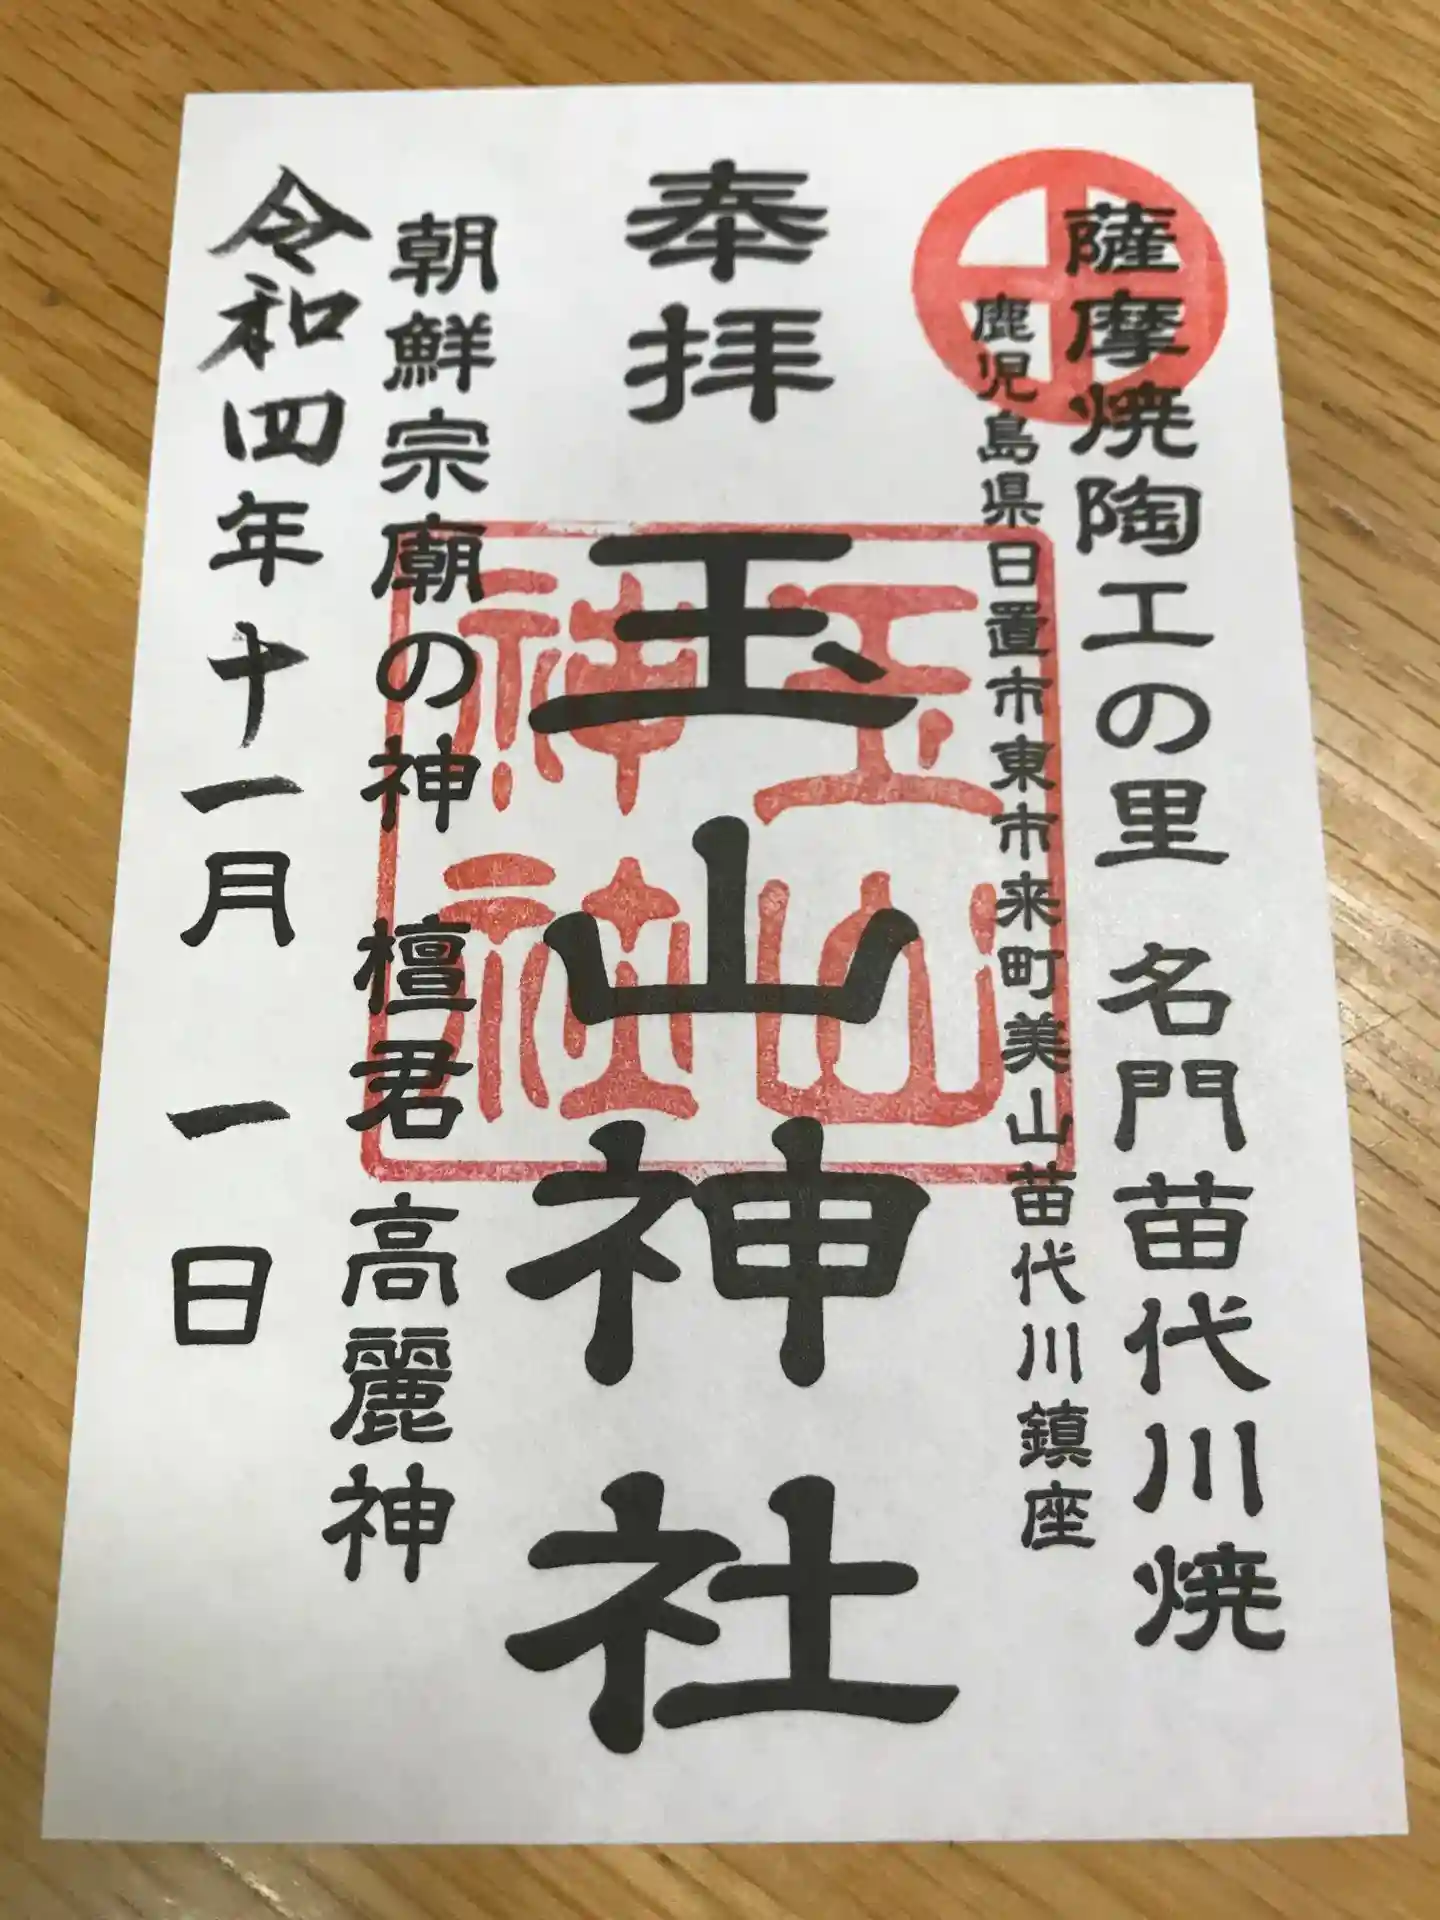 薩摩焼陶工の里 名門苗代川焼
鹿児島県日置市東市来町美山苗代川鎮座
奉拝
玉山神社
玉山
神社
朝鮮宗廟の神 檀君 高麗神
令和四年十一月 一日